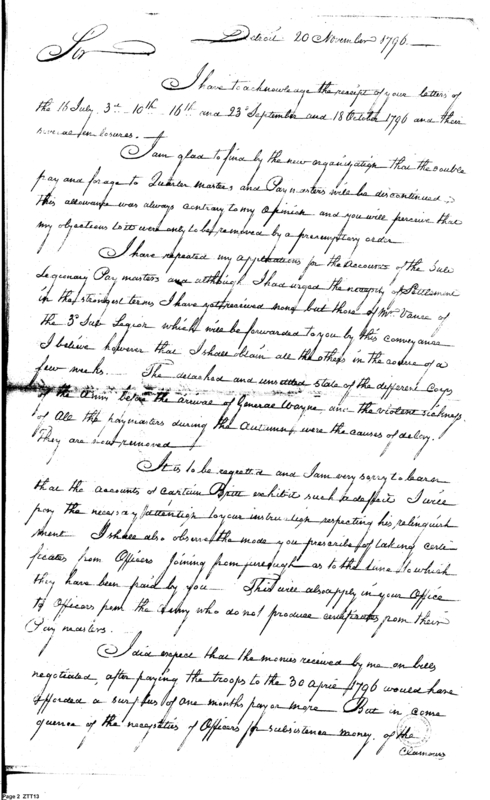 Detroit 20 November 1796
Sir
I have to acknowledge the receipt of your letters of
the 16 July 3rd 10th 16th and 23d September and 18 October 1796 and their
several inclosures.
I am glad to find by the new organization that the double
pay and forage to Quarter masters and Paymasters will be discontinued
this allowance was always contrary to my opinion and you will perceive that
my objections to it were only to be removed by a preemptory order
I have repeated my applications for the accounts of the Sub
Legionary Paymasters and although I had urged the necessity of Settlement
in the strongest terms I have not received any but those of Mr. Vance of
the 3d Sub Legion which will be forwarded to you by this conveyance
I believe however that I shall obtain all the others in the course of a
few weeks. The detached and unsettled state of the different Corps
of the Army before the arrival of General Wayne and the violent sickness
of all the paymasters during the Autumn were the causes of delay.
They are now removed
It is to be regretted and I am very sorry to learn
that the accounts of Captain Britt exhibit such a defect I will
pay the necessary attention to your instruction respecting his relinquish
ment I shall also observe the mode you prescribe of taking certi
ficates from Officers joining from furlough as to the time to which
they have been paid by you This will also apply in your Office
to Officers from the Army who do not produce certificates from their
Pay masters.
I did expect that the monies received by me on bills
negotiated, after paying the troops to the 30 April 1796 would have
afforded a surplus of one months pay or more But in conse
quence of the necessities of Officers for subsistence money, of the
Clamours
Page 2 ZTT13